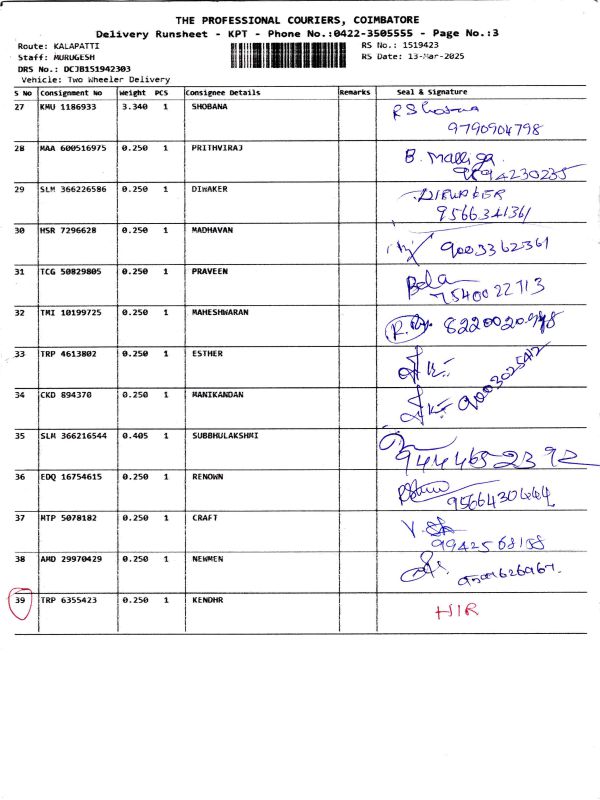 THE PROFESSIONAL COURIERS, COIMBATORE
Delivery Runsheet - KPT - Phone No.:0422-3505555 - Page No.:3
Route: KALAPATTI RS No.: 1519423
Staff: MURUGESH RS Date: 13-Mar-2025
DRS No.: DCJB151942303
Vehicle: Two Wheeler Delivery
S No Consignment No Weight PCS Consignee Details Remarks Seal & Signature
27 KMU 1186933 3.340 1 SHOBANA R Shobana
9790904798
28 MAA 600516975 0.250 1 PRITHVIRAJ B. Malliga.
9894230235
29 SLM 366226586 0.250 1 DIWAKER DIWAKER
9566341361
30 HSR 7296628 0.250 1 MADHAVAN 9003362361
31 TCG 50829805 0.250 1 PRAVEEN Bela
7540022713
32 TMI 10199725 0.250 1 MAHESHWARAN
33 TRP 4613802 0.250 1 ESTHER
34 CKD 894370 0.250 1 MANIKANDAN 9003025412
35 SLM 366216544 0.405 1 SUBBHULAKSHMI
9444652392
36 EDQ 16754615 0.250 1 RENOWN
9566430664
37 MTP 5078182 0.250 1 CRAFT
9942568158
38 AMD 29970429 0.250 1 NEWMEN
39 TRP 6355423 0.250 1 KENDHR HIR